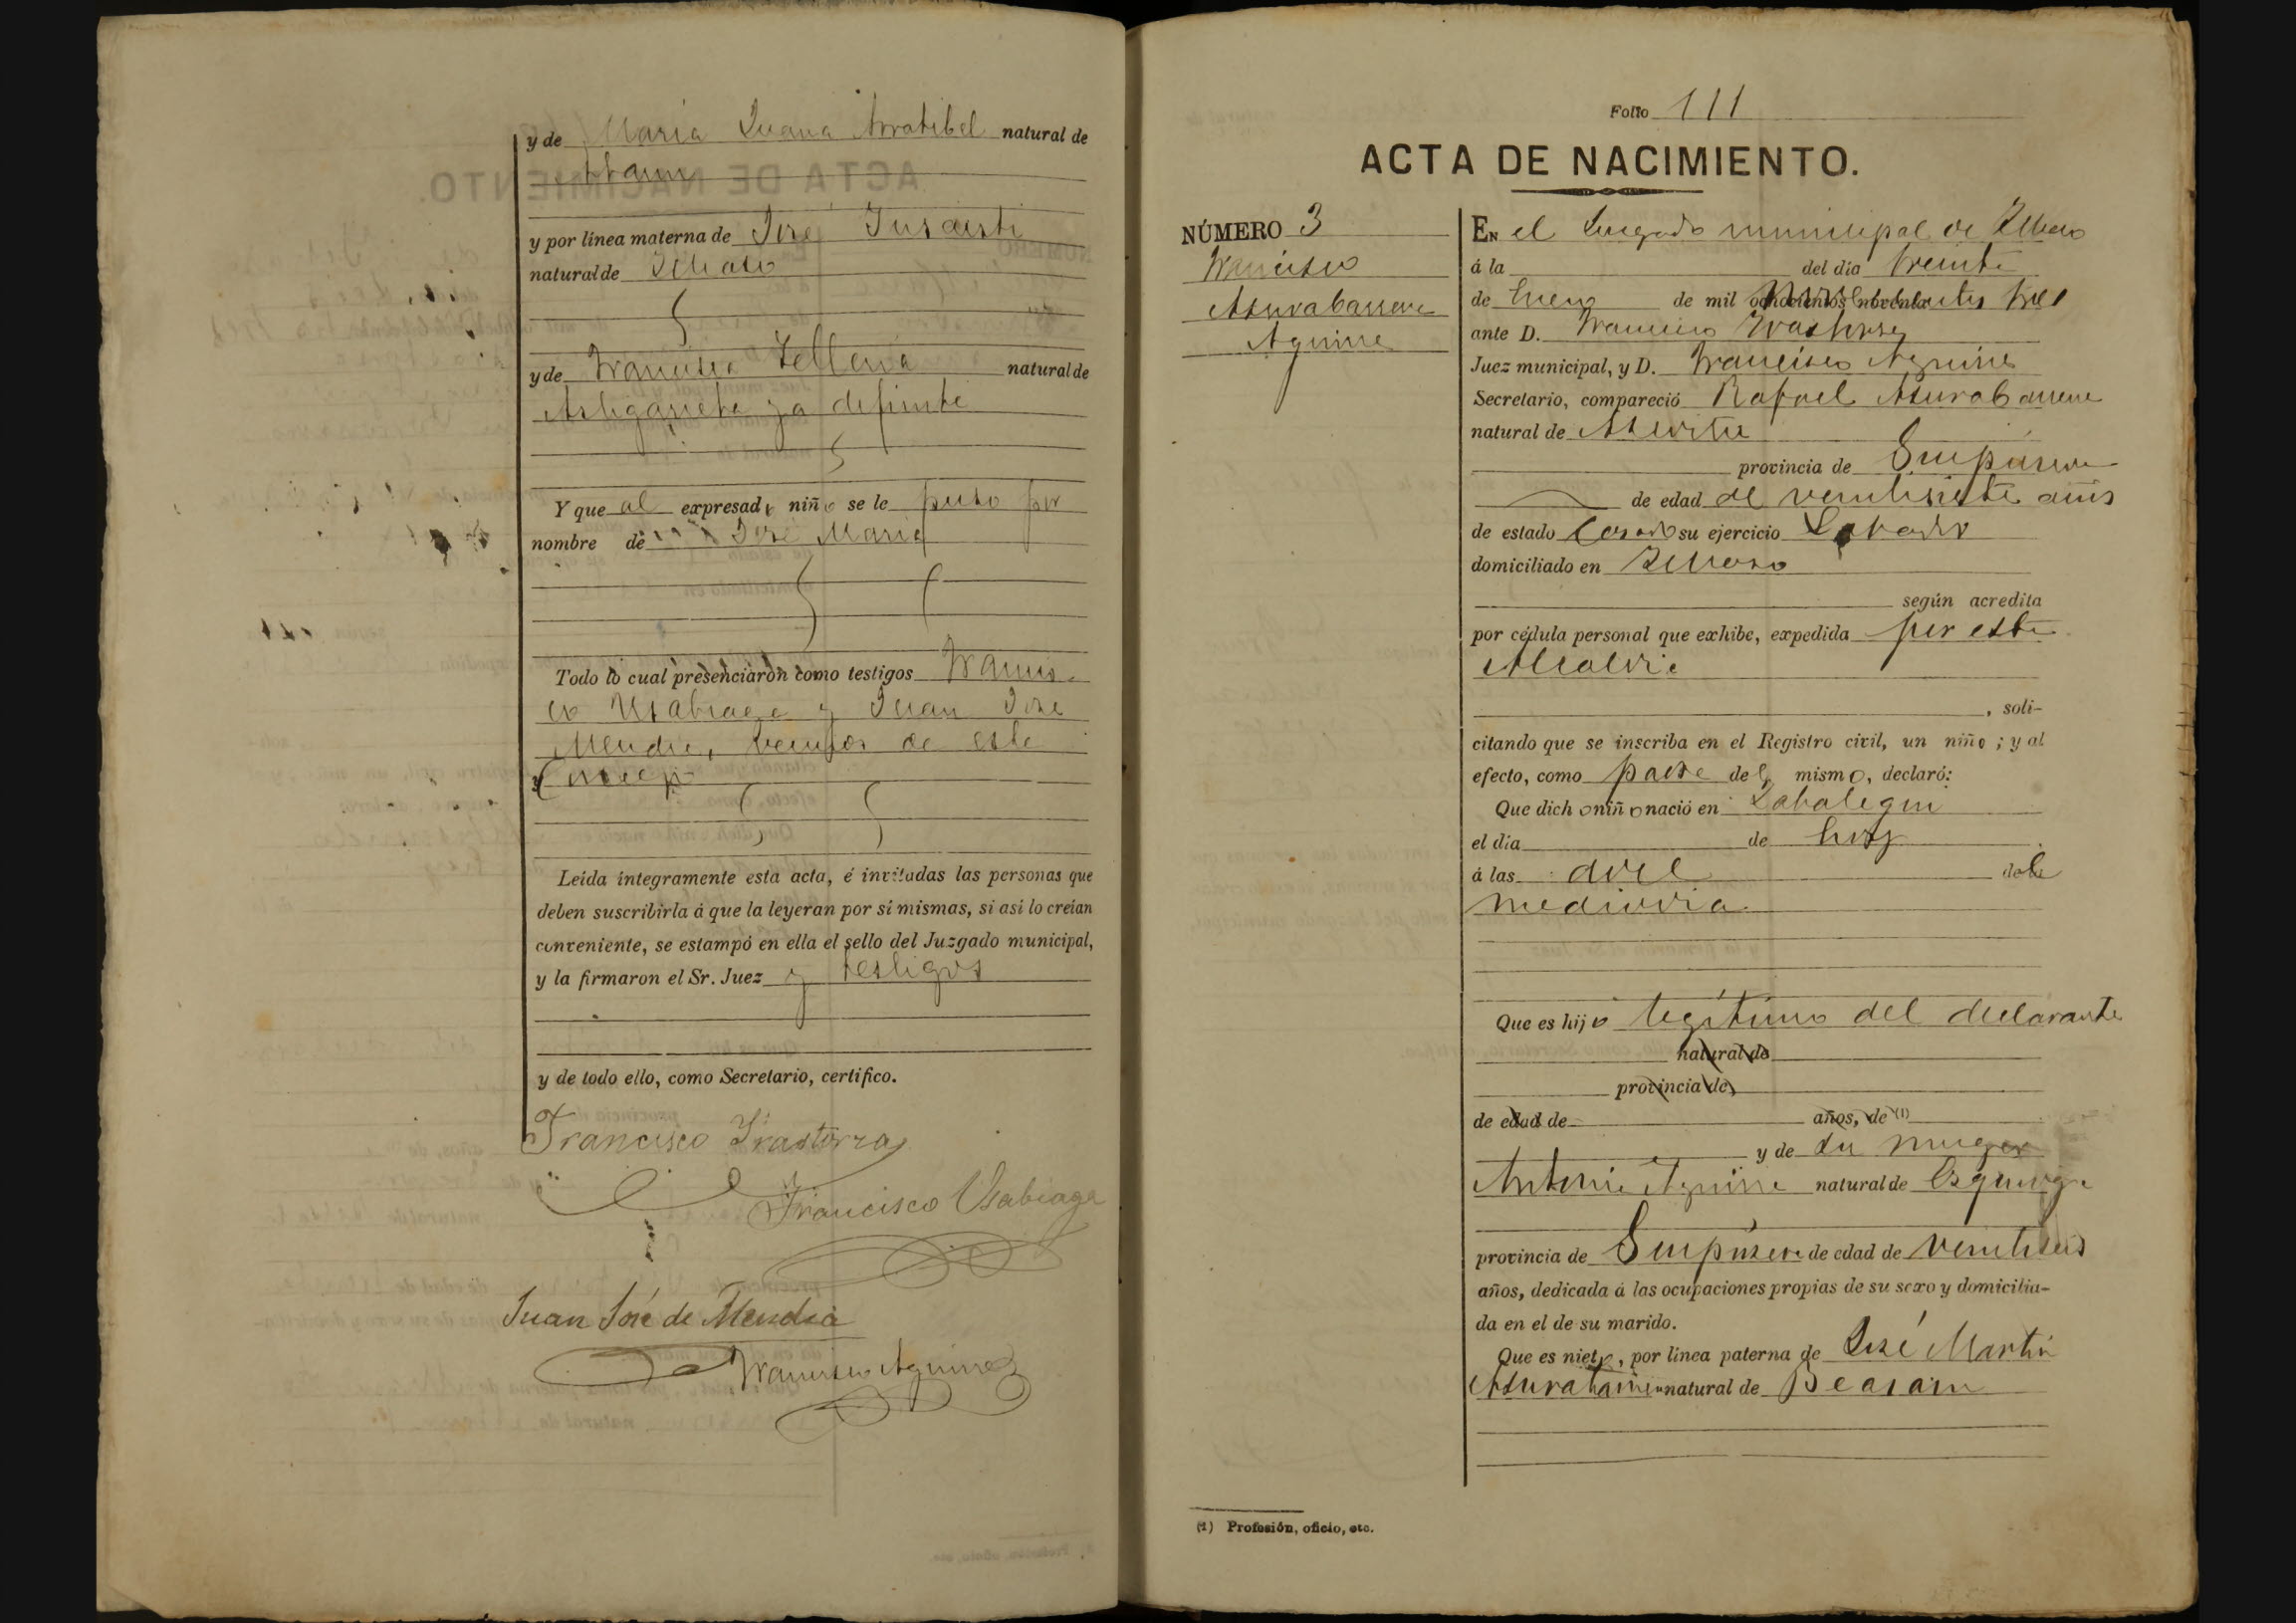 y de María Juana Arratibel natural de
Ataun
y por línea materna de José Insausti
natural de Ichaso
y de Francisca Tellería natural de
Astigarreta ya difunta
Y que al expresado niño se le puso por
nombre de José María
Todo lo cual presenciaron como testigos Francis-
co Usabiaga y Juan José
Mendia, vecinos de este
Leída íntegramente esta acta, é invitadas las personas que
deben suscribirla á que la leyeran por sí mismas, si así lo creían
conveniente, se estampó en ella el sello del Juzgado municipal,
y la firmaron el Sr. Juez y testigos
y de todo ello, como Secretario, certifico.
Francisco Irastorza
Francisco Usabiaga
Juan José de Mendia
Francisco Aguirre
Folio 111
ACTA DE NACIMIENTO.
NÚMERO 3
Francisco
Azurabarrena
Aguirre
EN el Juzgado municipal de Ichaso
á la del día treinta
de Enero de mil ochocientos noventa tres
ante D. Francisco Irastorza
Juez municipal, y D. Francisco Aguirre
Secretario, compareció Rafael Asurabarrena
natural de
provincia de Guipúzcoa
de edad de veintisiete años
de estado Casado su ejercicio Labrador
domiciliado en Ichaso
según acredita
por cédula personal que exhibe, expedida por esta
Alcaldía
, soli-
citando que se inscriba en el Registro civil, un niño; y al
efecto, como padre del mismo, declaró:
Que dicho niño nació en Zabalegui
el día de hoy
á las doce de la
mediodía
Que es hijo legítimo del declarante
natural de
provincia de
de edad de años, de (1)
y de su muger
Antonia Aguirre natural de Ezquioga
provincia de Guipúzcoa de edad de veintiseis
años, dedicada á las ocupaciones propias de su sexo y domicilia-
da en el de su marido.
Que es nieto, por línea paterna de José Martín
Asurabarrena natural de Beasain
(1) Profesión, oficio, etc.